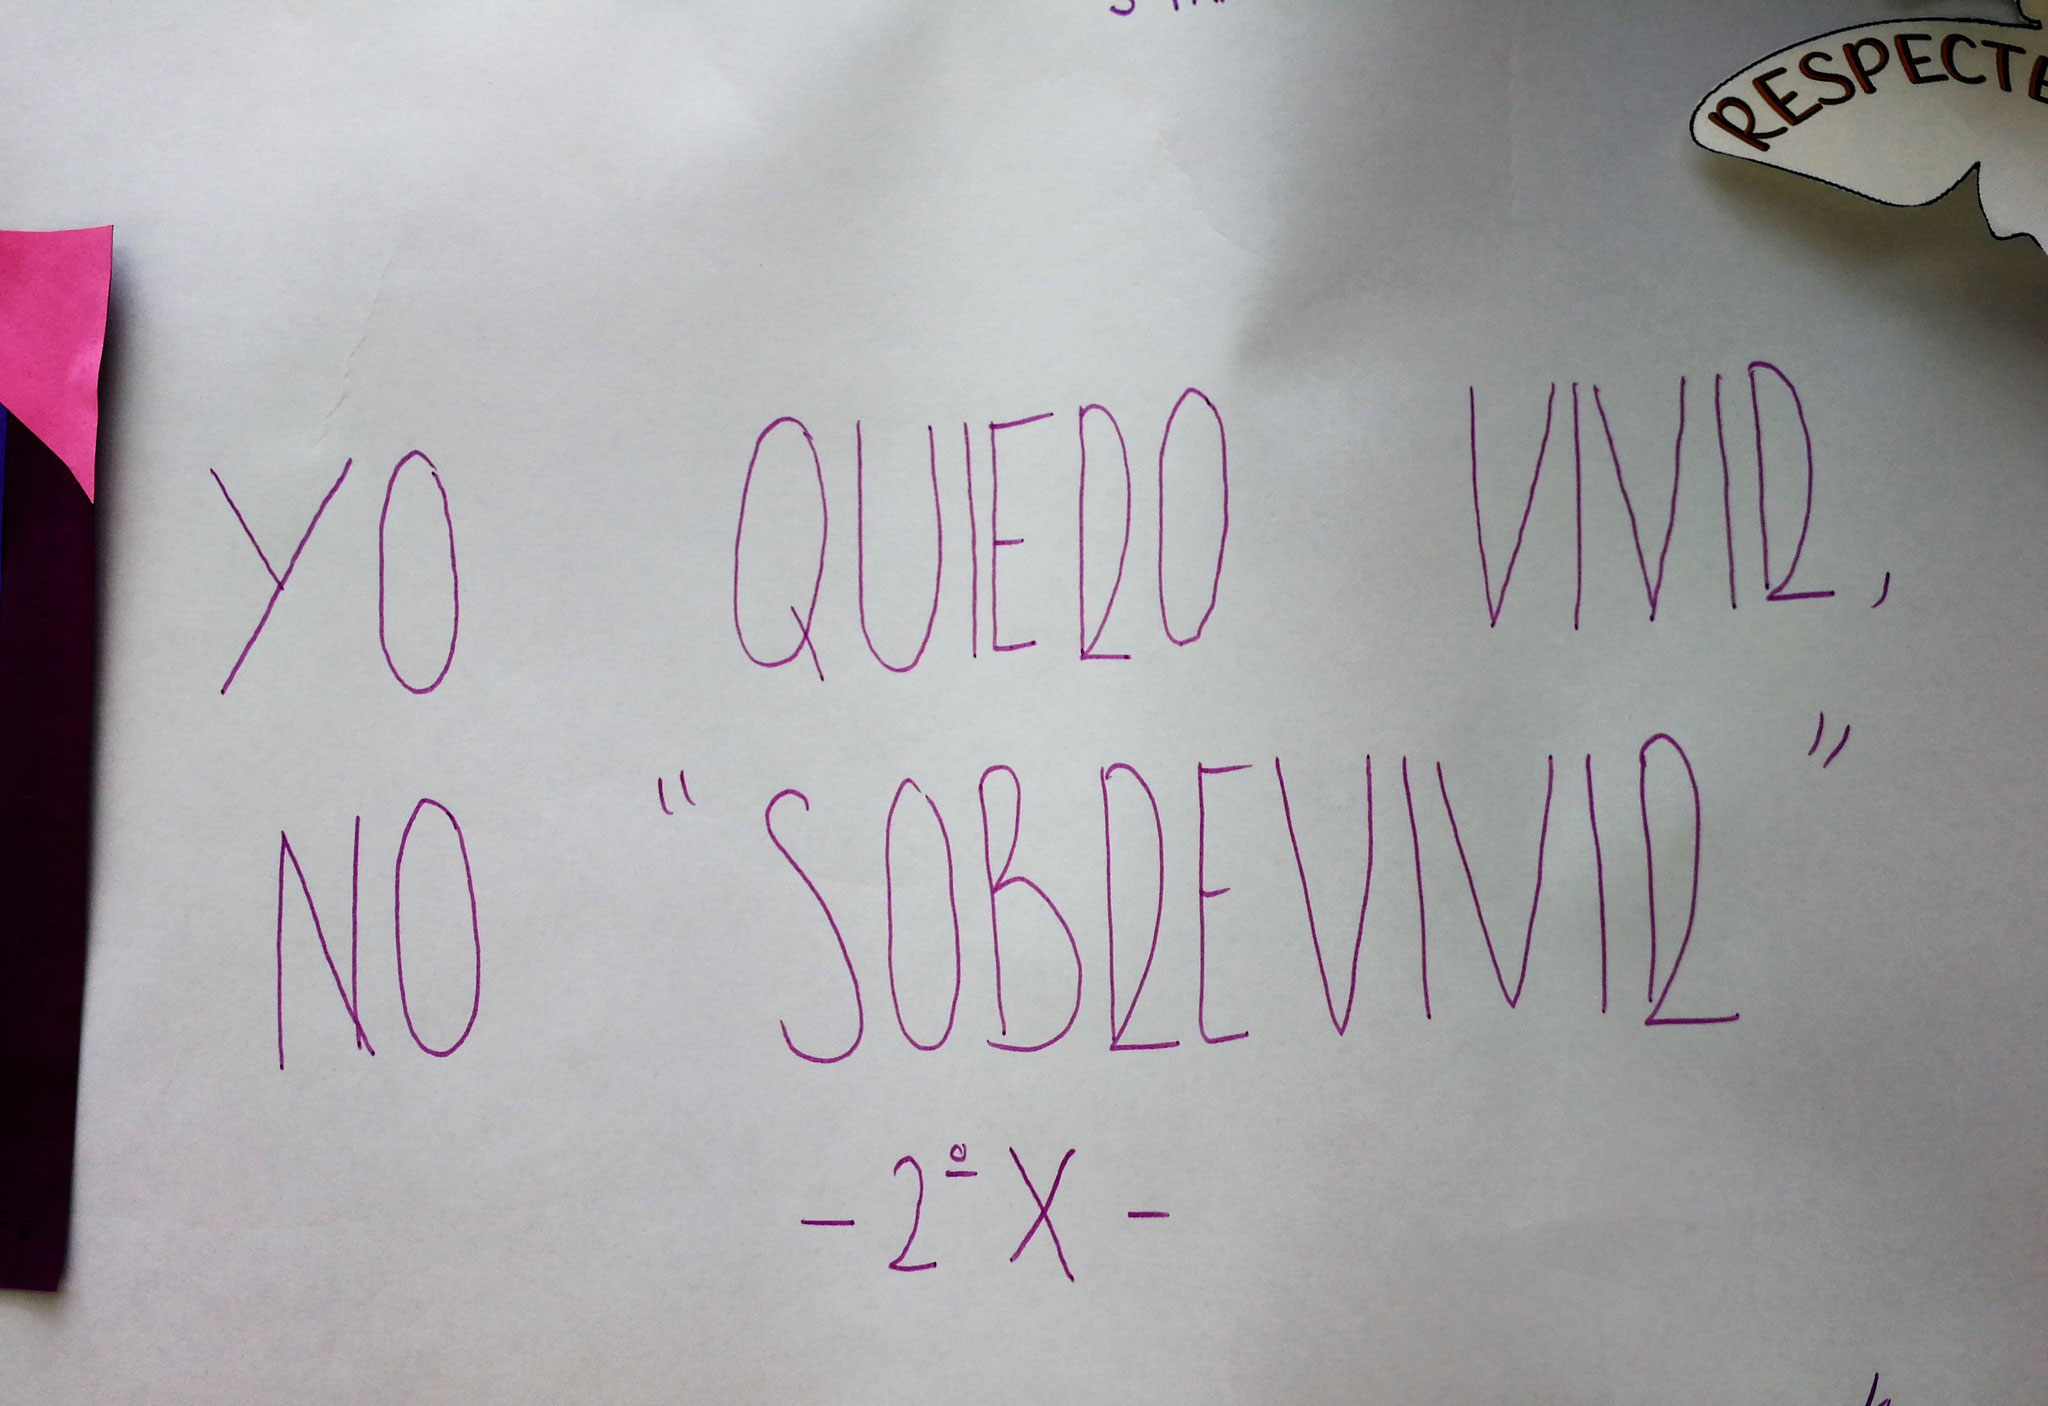 RESPECTE
YO QUIERO VIVIR,
NO "SOBREVIVIR"
- 2º X -